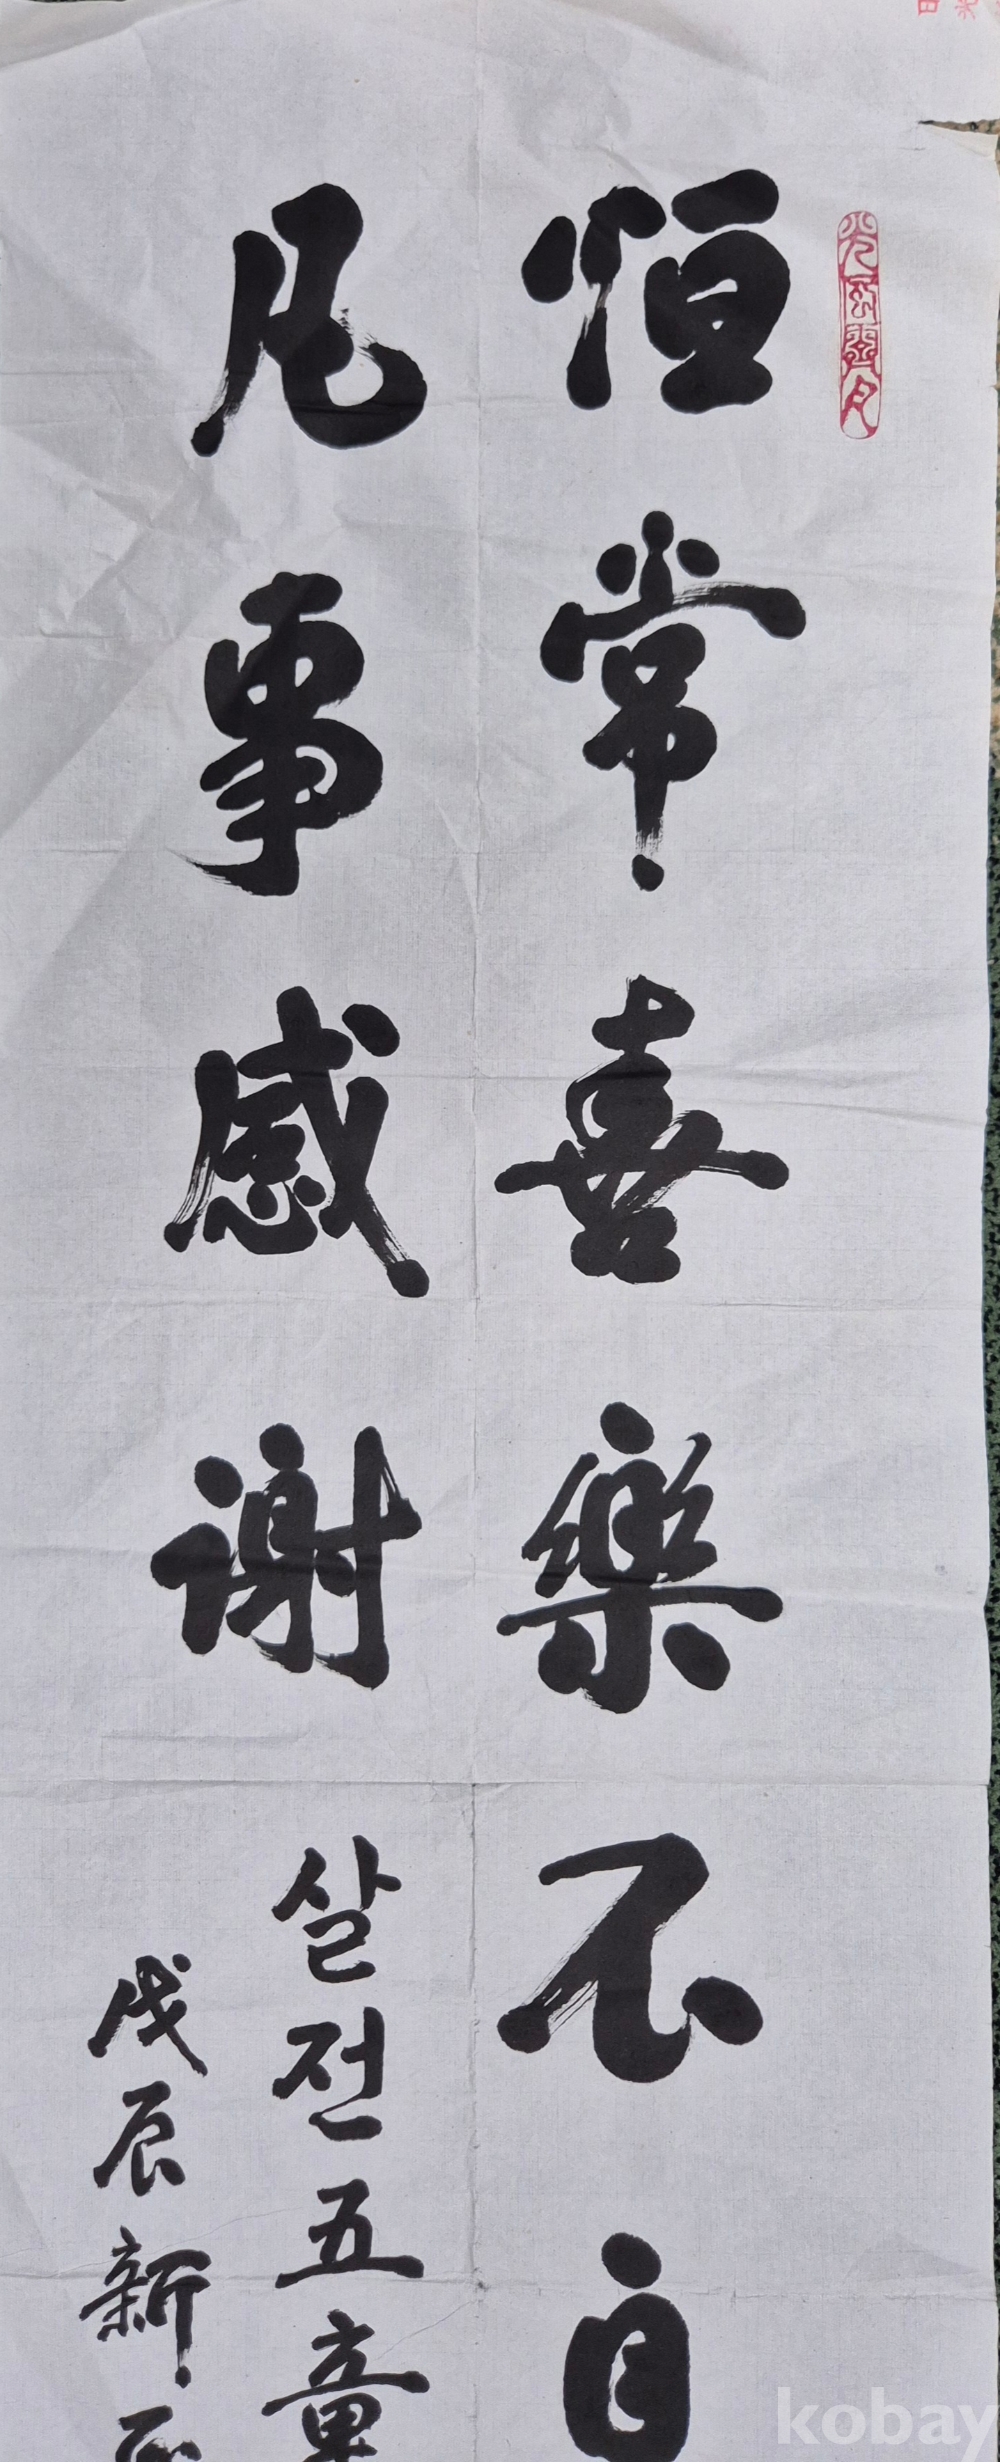 光風霽月
恒常喜樂不自
凡事感謝
살전五章
戊辰新正
kobay